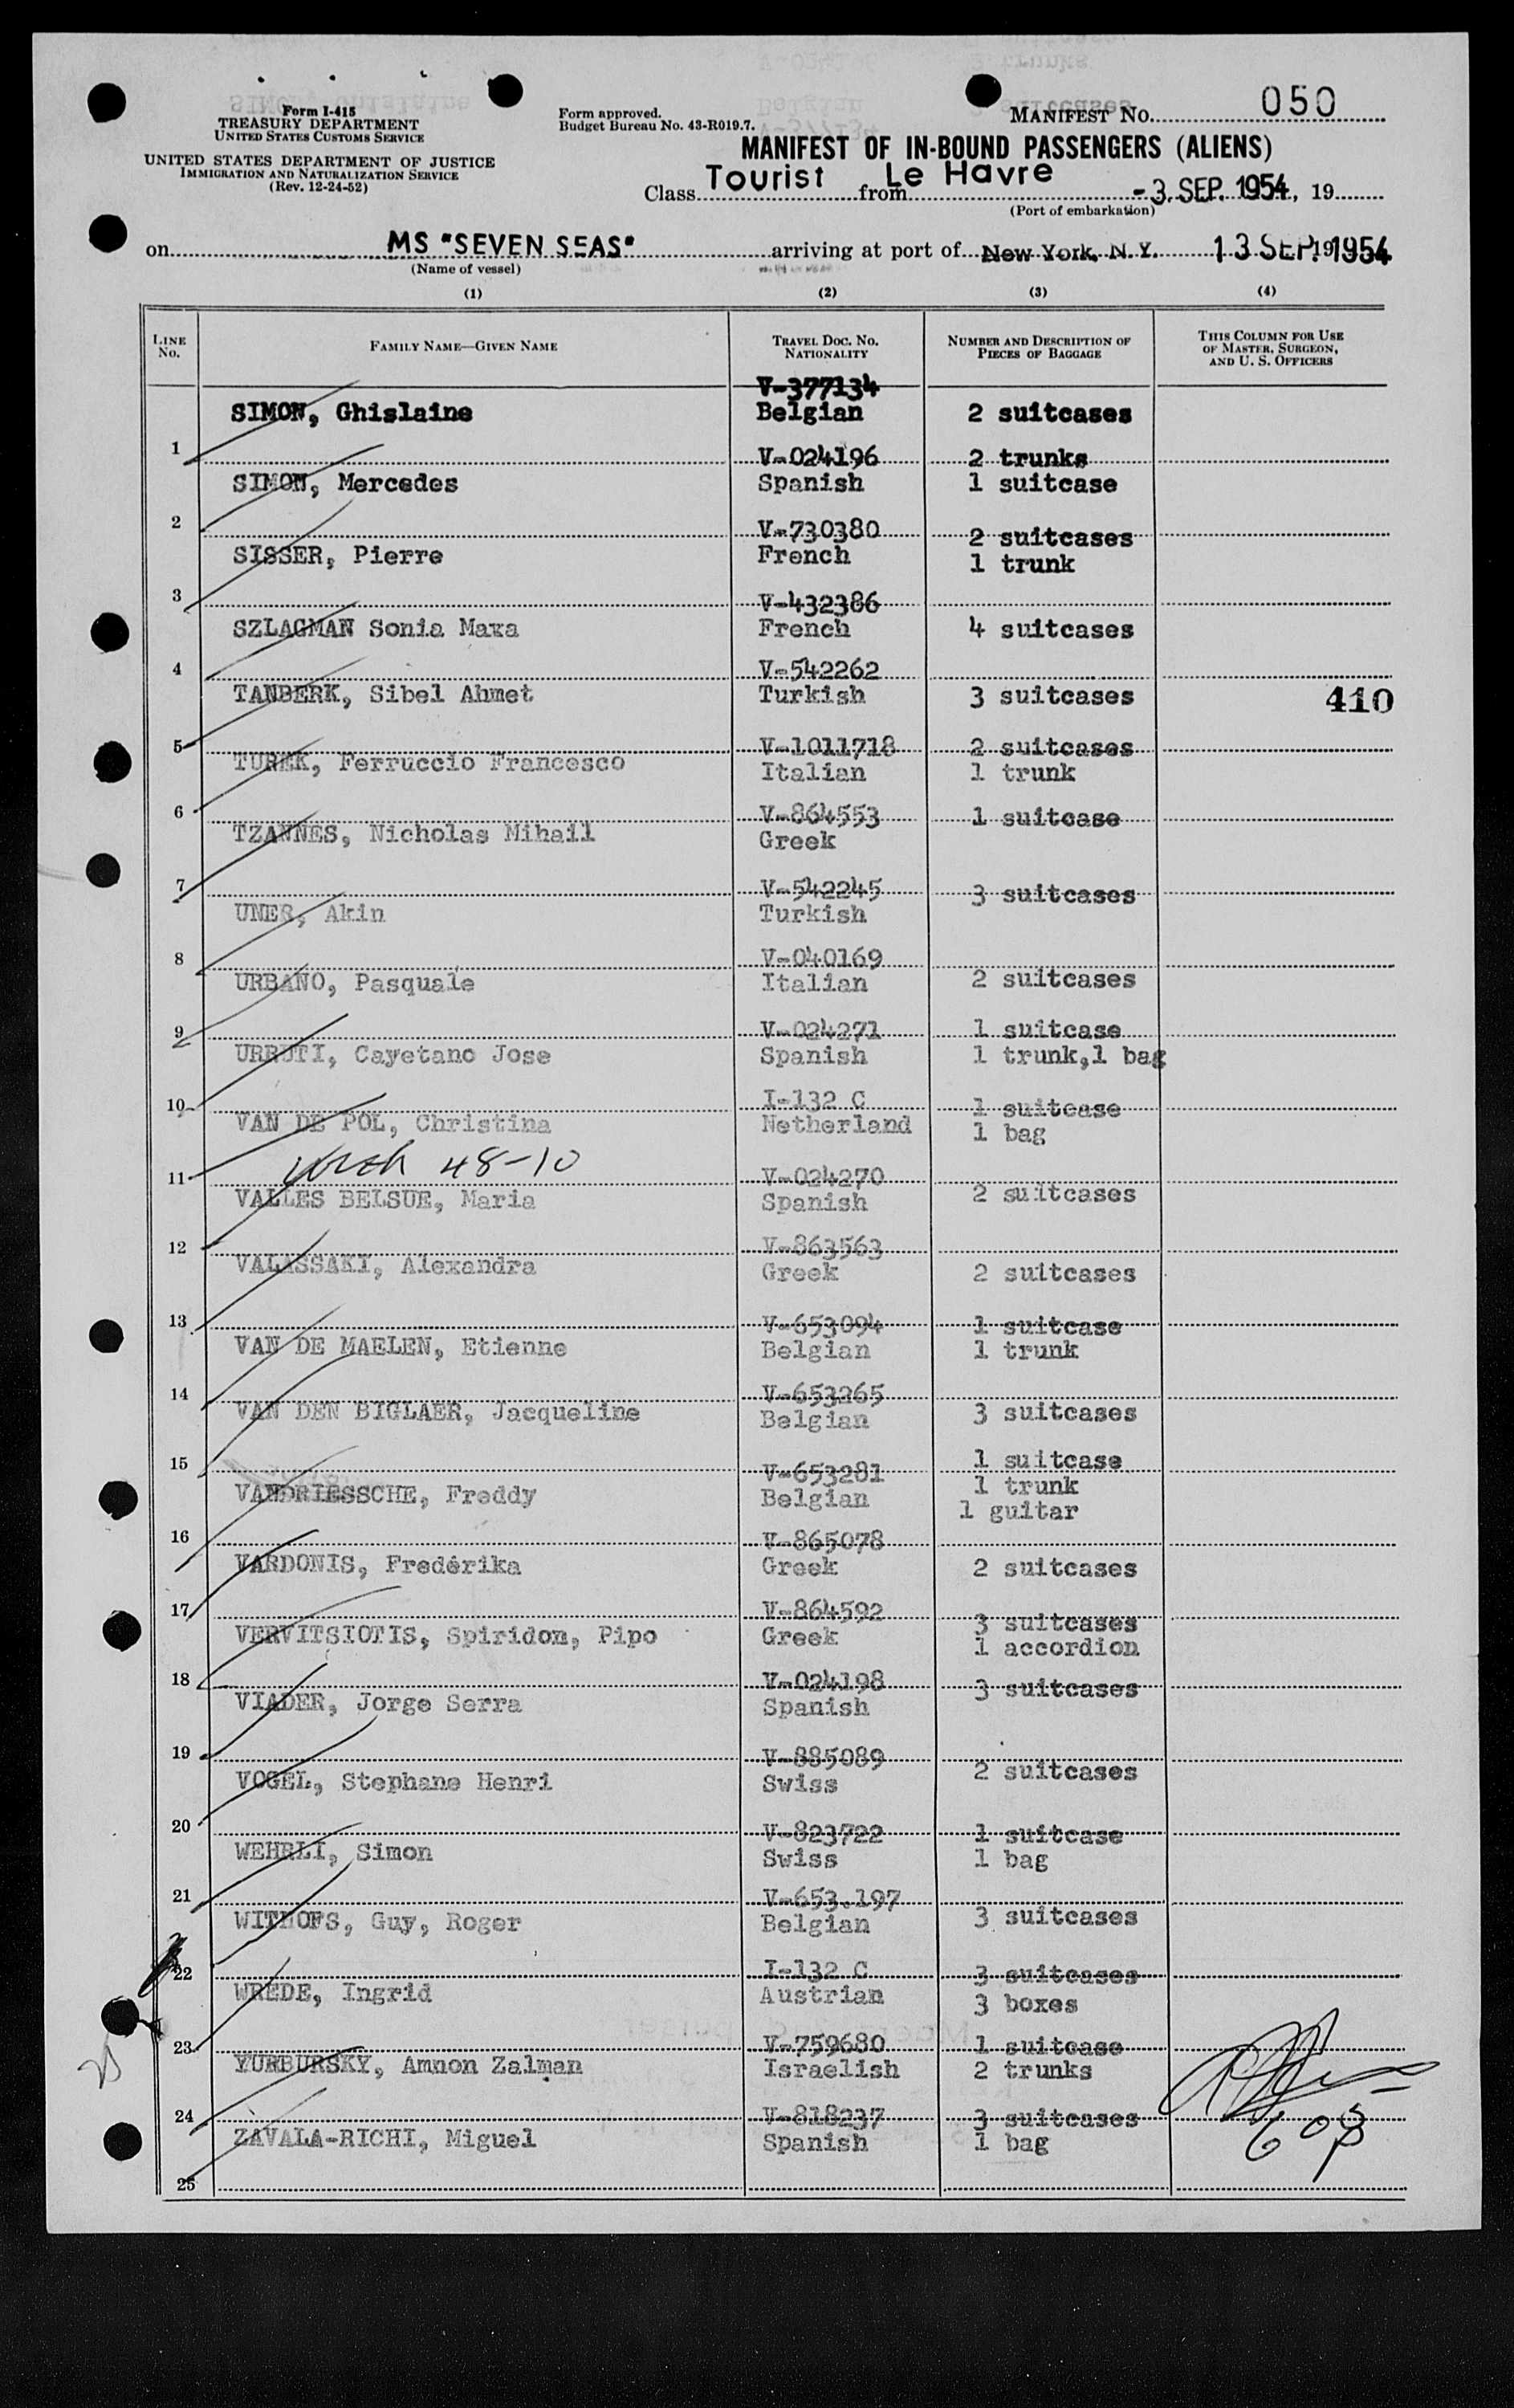 Form I-415
TREASURY DEPARTMENT
UNITED STATES CUSTOMS SERVICE
UNITED STATES DEPARTMENT OF JUSTICE
IMMIGRATION AND NATURALIZATION SERVICE
(Rev. 12-24-52)
Form approved.
Budget Bureau No. 43-R019.7.
MANIFEST NO. 050
MANIFEST OF IN-BOUND PASSENGERS (ALIENS)
Class Tourist from Le Havre -3. SEP. 1954, 19
(Port of embarkation)
on MS "SEVEN SEAS" arriving at port of New York, N.Y. 13 SEP. 19 1954
(Name of vessel)
(1) (2) (3) (4)
LINE NO. FAMILY NAME—GIVEN NAME TRAVEL DOC. NO. NATIONALITY NUMBER AND DESCRIPTION OF PIECES OF BAGGAGE THIS COLUMN FOR USE OF MASTER, SURGEON, AND U. S. OFFICERS
V-377134
SIMON, Ghislaine Belgian 2 suitcases
1 V-024196 2 trunks
SIMON, Mercedes Spanish 1 suitcase
2 V-730380 2 suitcases
SISSER, Pierre French 1 trunk
3 V-432386
SZLAGMAN Sonia Maxa French 4 suitcases
4 V-542262
TANBERK, Sibel Ahmet Turkish 3 suitcases 410
5 V-1011718 2 suitcases
TUREK, Ferruccio Francesco Italian 1 trunk
6 V-864553 1 suitcase
TZANNES, Nicholas Mihail Greek
7 V-542245 3 suitcases
UNER, Akin Turkish
8 V-040169
URBANO, Pasquale Italian 2 suitcases
9 V-024271 1 suitcase
URRUTI, Cayetano Jose Spanish 1 trunk,1 bag
10 I-132 C 1 suitcase
VAN DE POL, Christina Netherland 1 bag
11 48-10 V-024270
VALLES BELSUE, Maria Spanish 2 suitcases
12 V-863563
VALASSAKI, Alexandra Greek 2 suitcases
13 V-653094 1 suitcase
VAN DE MAELEN, Etienne Belgian 1 trunk
14 V-653265
VAN DEN BIGLAER, Jacqueline Belgian 3 suitcases
15 V-653281 1 suitcase
VANDRIESSCHE, Freddy Belgian 1 trunk
1 guitar
16 V-865078
VARDONIS, Fredérika Greek 2 suitcases
17 V-864592 3 suitcases
VERVITSIOTIS, Spiridon, Pipo Greek 1 accordion
18 V-024198 3 suitcases
VIADER, Jorge Serra Spanish
19 V-885089 2 suitcases
VOGEL, Stephane Henri Swiss
20 V-823722 1 suitcase
WEHRLI, Simon Swiss 1 bag
21 V-653.197
WITHOFS, Guy, Roger Belgian 3 suitcases
22 I-132 C 3 suitcases
WREDE, Ingrid Austrian 3 boxes
23 V-759680 1 suitcase
YURBURSKY, Amnon Zalman Israelish 2 trunks
24 V-818237 3 suitcases
ZAVALA-RICHI, Miguel Spanish 1 bag
25